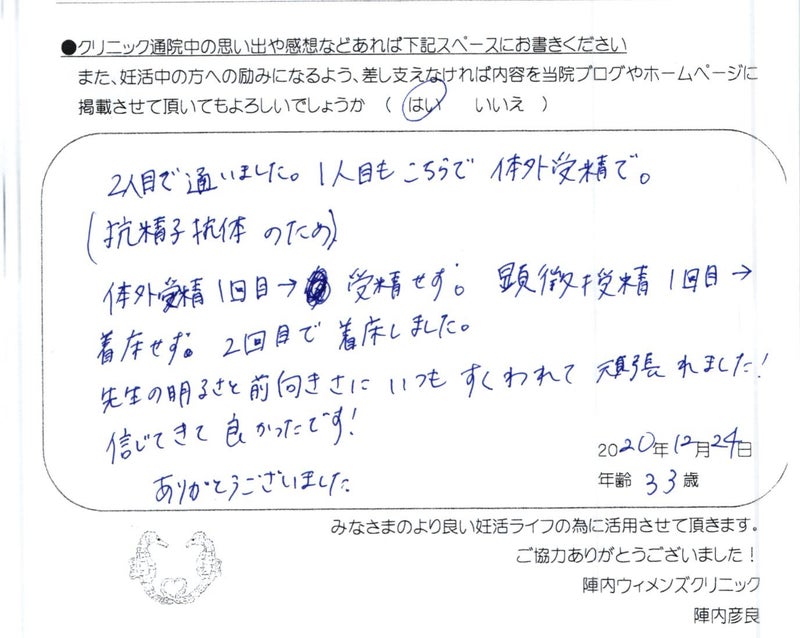 ●クリニック通院中の思い出や感想などあれば下記スペースにお書きください
また、妊活中の方への励みになるよう、差し支えなければ内容を当院ブログやホームページに
掲載させて頂いてもよろしいでしょうか （ はい いいえ ）
2人目で通いました。1人目もこちらで 体外受精で。
(抗精子抗体 のため)
体外受精1回目→ 受精せず。 顕微授精 1回目→
着床せず。2回目で 着床しました。
先生の明るさと前向きさに いつも すくわれて 頑張れました!
信じてきて 良かったです!
ありがとうございました
2020年12月24日
年齢 33歳
みなさまのより良い妊活ライフの為に活用させて頂きます。
ご協力ありがとうございました！
陣内ウィメンズクリニック
陣内彦良